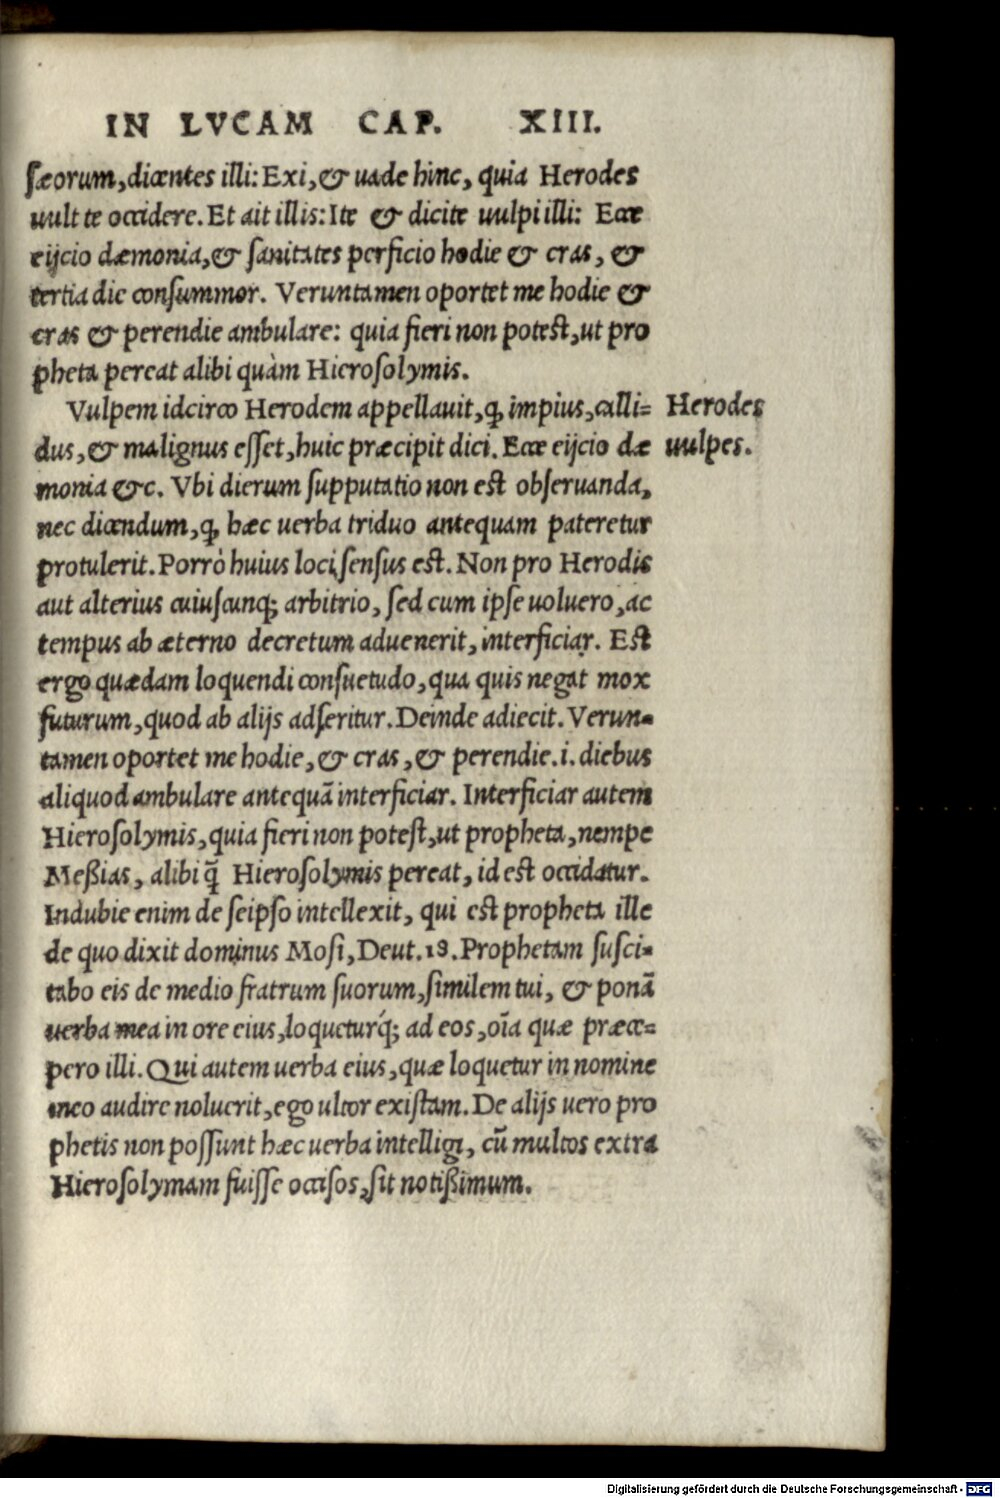 IN LVCAM CAP. XIII.
sæorum, dicentes illi: Exi, & uade hinc, quia Herodes
uult te occidere. Et ait illis: Ite & dicite uulpi illi: Ecce
eijcio dæmonia, & sanitates perficio hodie & cras, &
tertia die consummor. Veruntamen oportet me hodie &
cras & perendie ambulare: quia fieri non potest, ut pro
pheta pereat alibi quàm Hierosolymis.
Vulpem idcirco Herodem appellauit, ꝙ impius, calli=
dus, & malignus esset, huic præcipit dici. Ecce eijcio dæ
monia &c. Vbi dierum supputatio non est obseruanda,
nec dicendum, ꝙ hæc uerba triduo antequam pateretur
protulerit. Porrò huius loci sensus est. Non pro Herodis
aut alterius cuiuscunq; arbitrio, sed cum ipse uoluero, ac
tempus ab æterno decretum aduenerit, interficiar. Est
ergo quædam loquendi consuetudo, qua quis negat mox
futurum, quod ab alijs adseritur. Deinde adiecit. Verun=
tamen oportet me hodie, & cras, & perendie. i. diebus
aliquod ambulare antequā interficiar. Interficiar autem
Hierosolymis, quia fieri non potest, ut propheta, nempe
Meßias, alibi q̄ Hierosolymis pereat, id est occidatur.
Indubie enim de seipso intellexit, qui est propheta ille
de quo dixit dominus Mosi, Deut. 18. Prophetam susci=
tabo eis de medio fratrum suorum, similem tui, & ponā
uerba mea in ore eius, loqueturq́; ad eos, oīa quæ præce=
pero illi. Qui autem uerba eius, quæ loquetur in nomine
meo audire noluerit, ego ultor existam. De alijs uero pro
phetis non possunt hæc uerba intelligi, cū multos extra
Hierosolymam fuisse occisos, sit notißimum.
Herodes
uulpes.
Digitalisierung gefördert durch die Deutsche Forschungsgemeinschaft - DFG